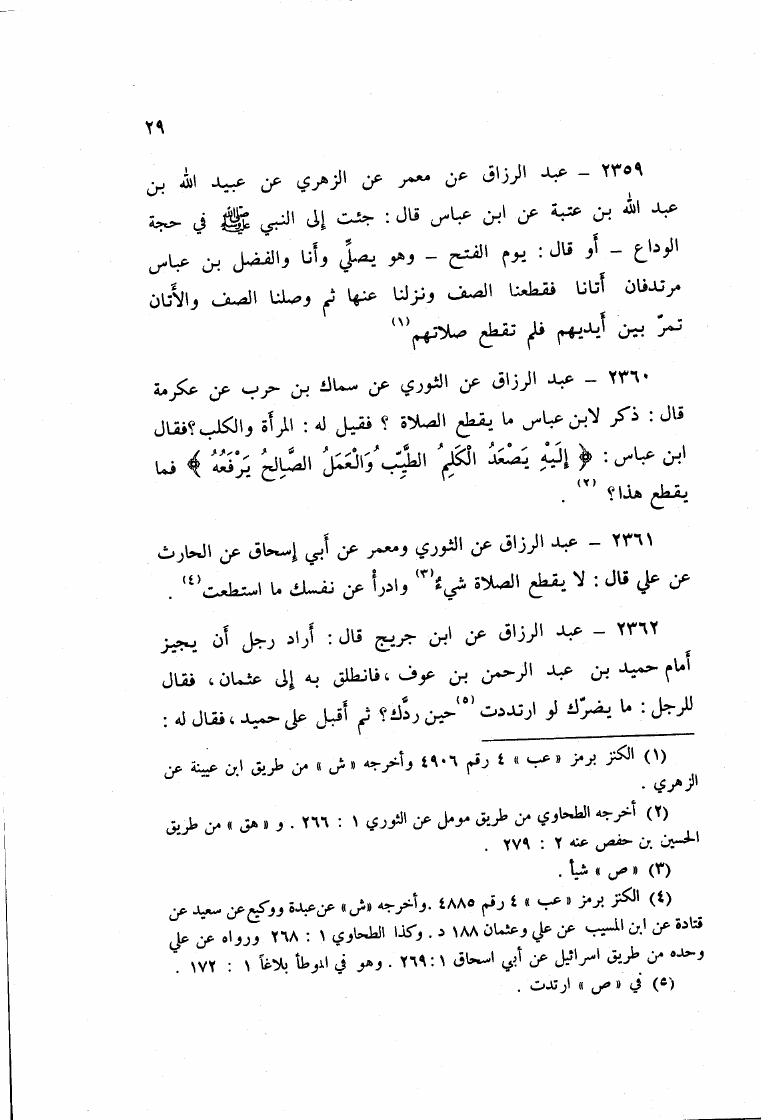 ٢٩
٢٣٥٩ ـ عبد الرزاق عن معمر عن الزهري عن عبيد الله بن
عبد الله بن عتبة عن ابن عباس قال : جئت إلى النبي ﷺ في حجة
الوداع ـ أو قال : يوم الفتح ـ وهو يصلِّي وأنا والفضل بن عباس
مرتدفان أتانا فقطعنا الصف ونزلنا عنها ثم وصلنا الصف والأتان
تمرّ بين أيديهم فلم تقطع صلاتهم (١)
٢٣٦٠ ـ عبد الرزاق عن الثوري عن سماك بن حرب عن عكرمة
قال : ذكر لابن عباس ما يقطع الصلاة ؟ فقيل له : المرأة والكلب؟ فقال
ابن عباس : ﴿ إِلَيْهِ يَصْعَدُ الْكَلِمُ الطَّيِّبُ وَالْعَمَلُ الصَّالِحُ يَرْفَعُهُ ﴾ فما
يقطع هذا؟ (٢) .
٢٣٦١ ـ عبد الرزاق عن الثوري ومعمر عن أبي إسحاق عن الحارث
عن علي قال : لا يقطع الصلاة شيءٌ (٣) وادرأ عن نفسك ما استطعت (٤) .
٢٣٦٢ ـ عبد الرزاق عن ابن جريج قال : أراد رجل أن يجيز
أمام حميد بن عبد الرحمن بن عوف ، فانطلق به إلى عثمان ، فقال
للرجل : ما يضرّك لو ارتددت (٥) حين ردَّك؟ ثم أقبل على حميد ، فقال له :
(١) الكنز برمز « عب » ٤ رقم ٤٩٠٦ وأخرجه « ش » من طريق ابن عيينة عن
الزهري .
(٢) أخرجه الطحاوي من طريق مومل عن الثوري ١ : ٢٦٦ . و « هق » من طريق
الحسين بن حفص عنه ٢ : ٢٧٩ .
(٣) « ص » شيأ .
(٤) الكنز برمز « عب » ٤ رقم ٤٨٨٥ .وأخرجه «ش» عن عبدة ووكيع عن سعيد عن
قتادة عن ابن المسيب عن علي وعثمان ١٨٨ د . وكذا الطحاوي ١ : ٢٦٨ ورواه عن علي
وحده من طريق اسرائيل عن أبي اسحاق ١ : ٢٦٩ . وهو في الموطأ بلاغاً ١ : ١٧٢ .
(٥) في « ص » ارتدت .